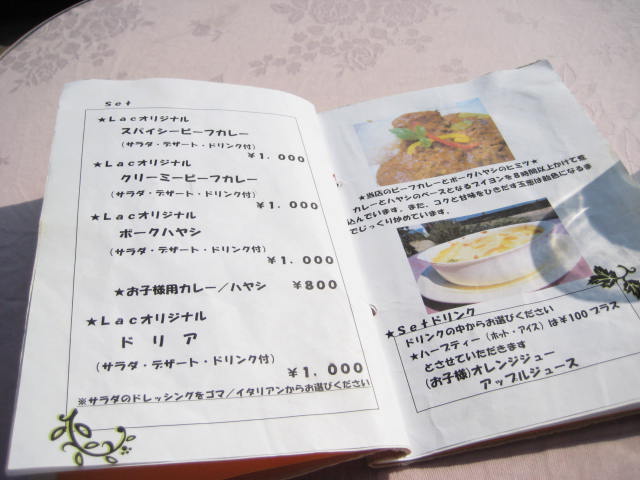 Set
★Lacオリジナル
スパイシービーフカレー
(サラダ・デザート・ドリンク付)
¥1．000
★Lacオリジナル
クリーミービーフカレー
(サラダ・デザート・ドリンク付)
¥1．000
★Lacオリジナル
ポークハヤシ
(サラダ・デザート・ドリンク付)
¥1．000
★お子様用カレー／ハヤシ ¥800
★Lacオリジナル
ドリア
(サラダ・デザート・ドリンク付)
¥1．000
※サラダのドレッシングをゴマ／イタリアンからお選びください
★当店のビーフカレーとポークハヤシのヒミツ★
カレーとハヤシのベースとなるブイヨンを8時間以上かけて煮
込んでいます。また、コクと甘味をひきだす玉葱は飴色になるま
でじっくり炒めています。
★Setドリンク
ドリンクの中からお選びください
★ハーブティー（ホット・アイス）は¥100プラス
とさせていただきます
(お子様)オレンジジュー
アップルジュース